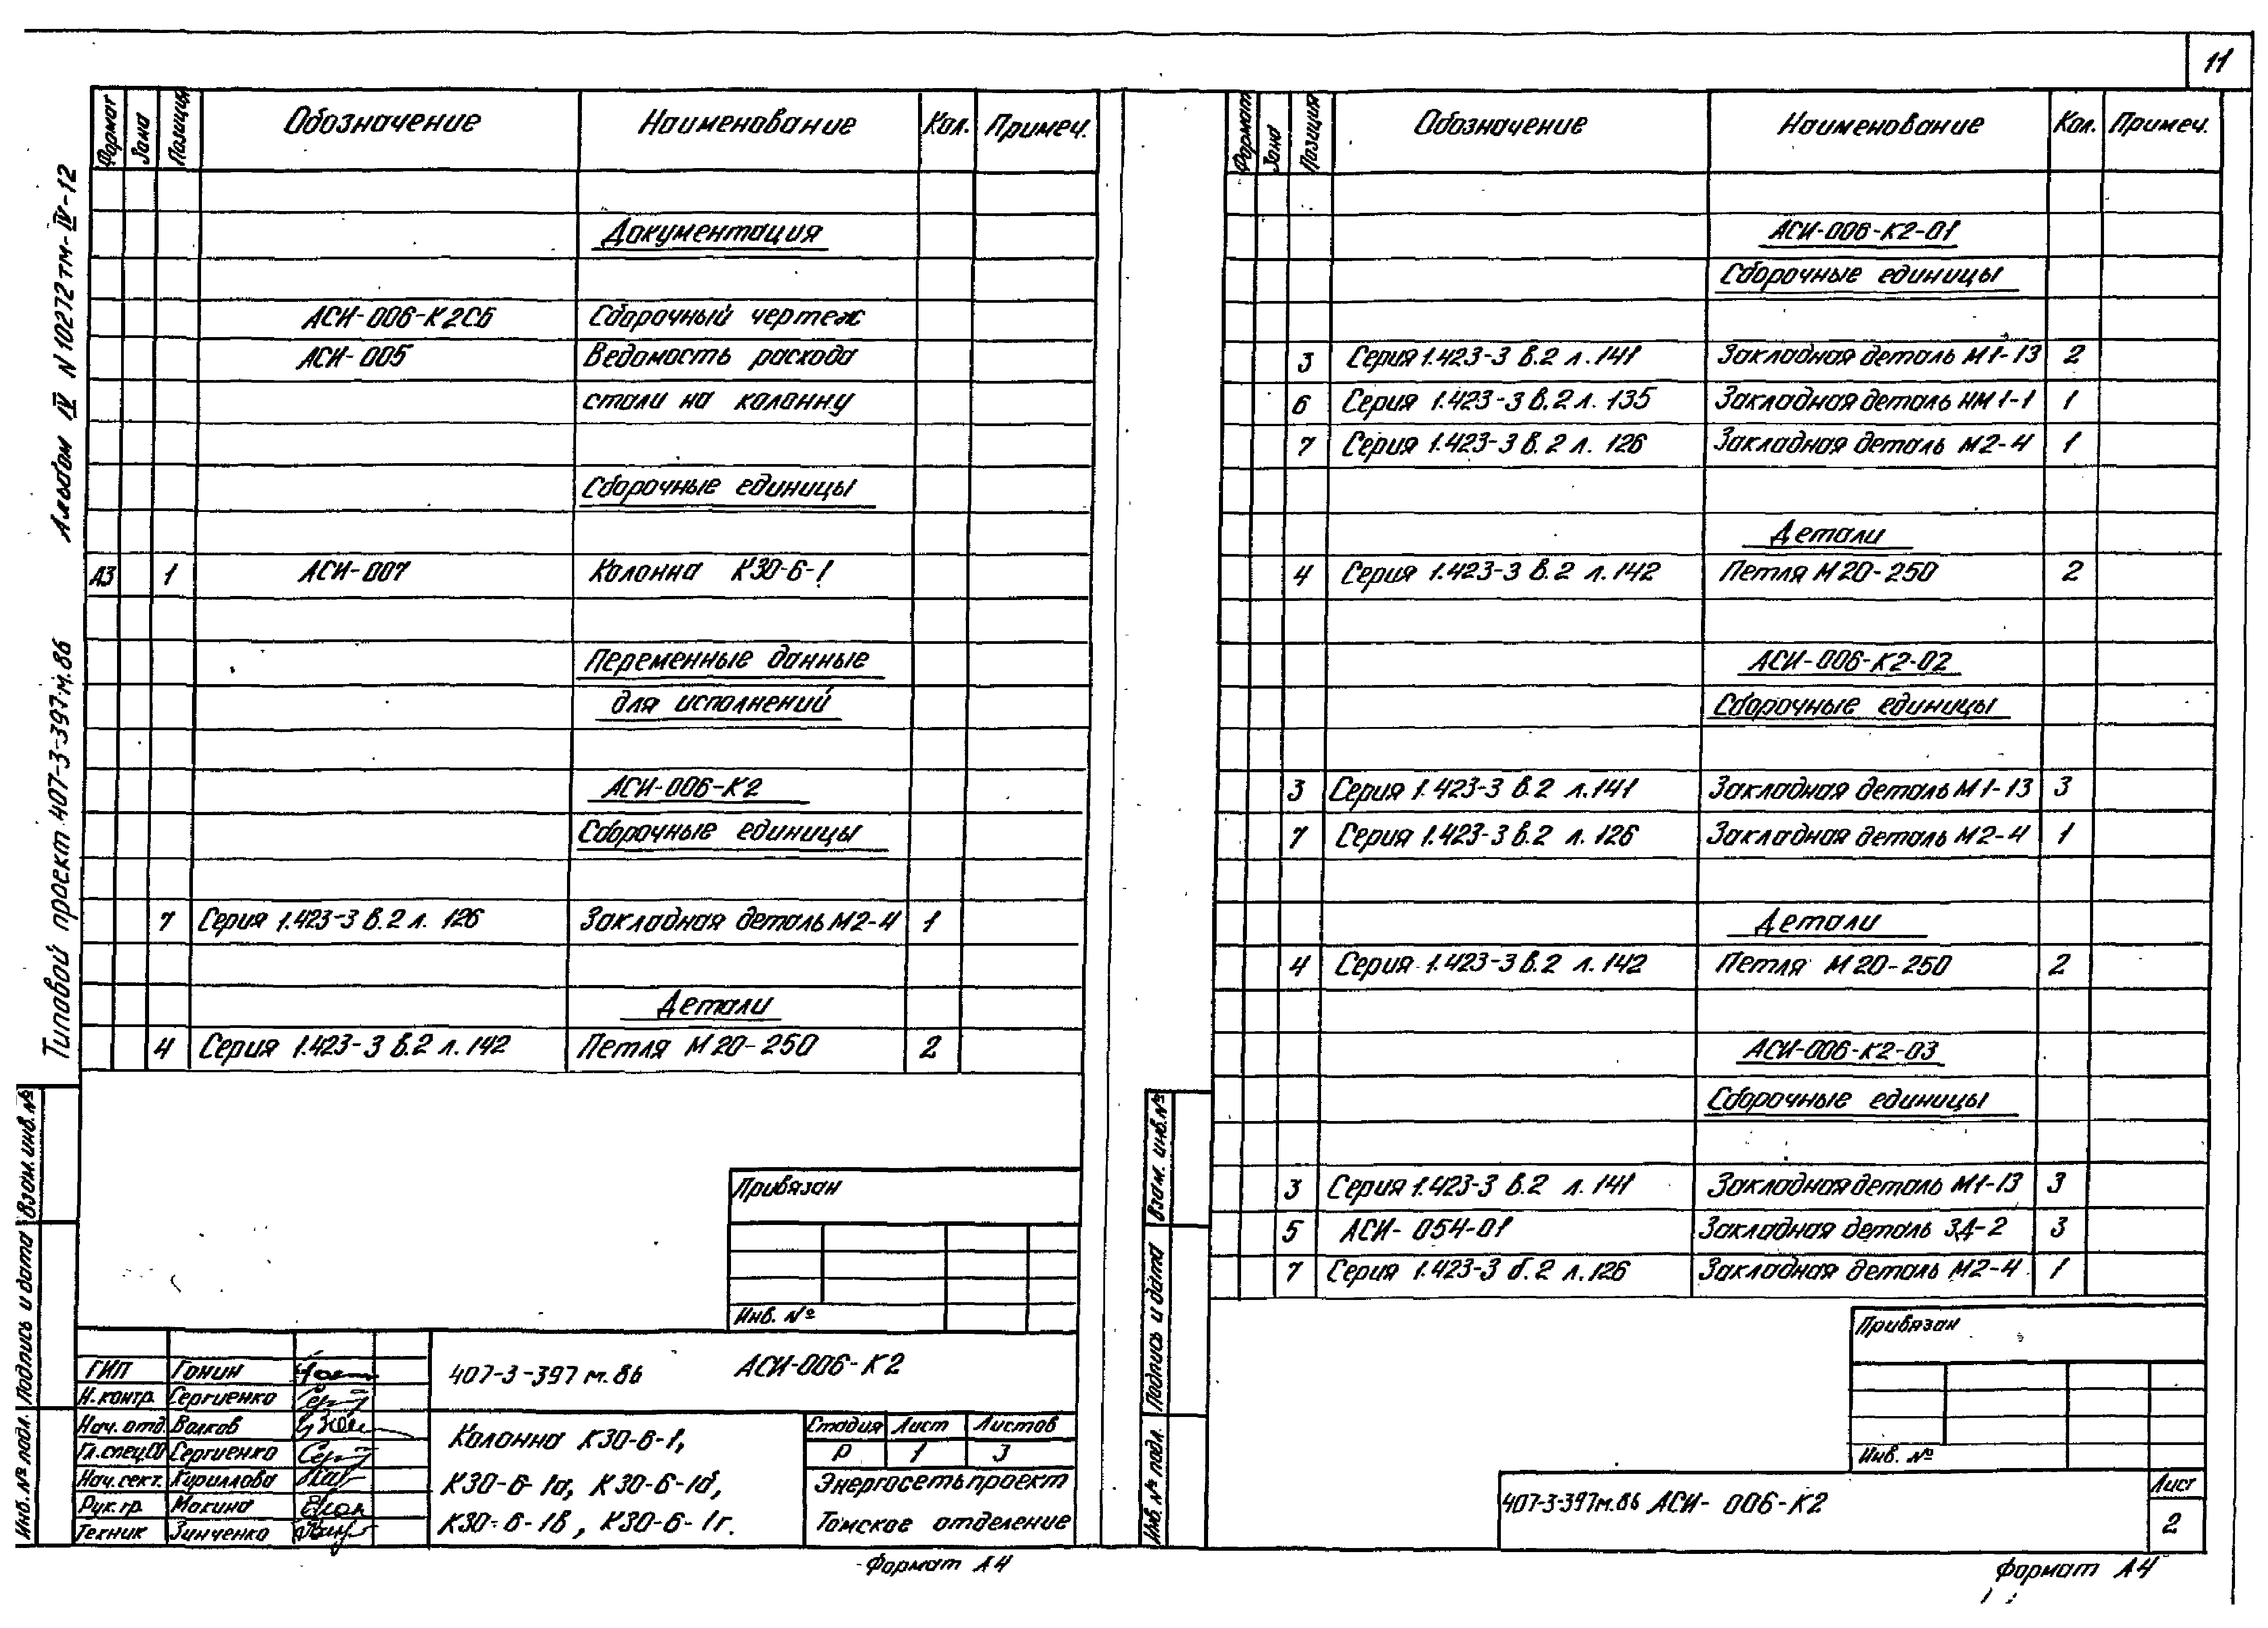 11
Альбом IV N 10272тм-IV-12
Типовой проект 407-3-397м.86
Формат Зона Позиция Обозначение Наименование Кол. Примеч.
Документация
АСИ-006-К2СБ Сборочный чертеж
АСИ-005 Ведомость расхода
стали на колонну
Сборочные единицы
А3 1 АСИ-007 Колонна К30-6-1
Переменные данные
для исполнений
АСИ-006-К2
Сборочные единицы
7 Серия 1.423-3 в.2 л. 126 Закладная деталь М2-4 1
Детали
4 Серия 1.423-3 в.2 л.142 Петля М20-250 2
Привязан
Инв. №
Взам. инв. №
Подпись и дата
Инв. № подл.
ГИП Гонин
Н.контр. Сергиенко
Нач. отд. Волков
Гл.спец.СО Сергиенко
Нач.сект. Кириллова
Рук.гр. Мокина
Техник Зинченко
407-3-397м.86 АСИ-006-К2
Колонна К30-6-1,
К30-6-1а, К30-6-1б,
К30-6-1в, К30-6-1г.
Стадия Лист Листов
Р 1 3
Энергосетьпроект
Томское отделение
Формат А4
Формат Зона Позиция Обозначение Наименование Кол. Примеч.
АСИ-006-К2-01
Сборочные единицы
3 Серия 1.423-3 в.2 л.141 Закладная деталь М1-13 2
6 Серия 1.423-3 в.2 л. 135 Закладная деталь НМ1-1 1
7 Серия 1.423-3 в.2 л. 126 Закладная деталь М2-4 1
Детали
4 Серия 1.423-3 в.2 л.142 Петля М20-250 2
АСИ-006-К2-02
Сборочные единицы
3 Серия 1.423-3 в.2 л.141 Закладная деталь М1-13 3
7 Серия 1.423-3 в.2 л.126 Закладная деталь М2-4 1
Детали
4 Серия 1.423-3 в.2 л.142 Петля М20-250 2
АСИ-006-К2-03
Сборочные единицы
3 Серия 1.423-3 в.2 л.141 Закладная деталь М1-13 3
5 АСИ-054-01 Закладная деталь ЗД-2 3
7 Серия 1.423-3 в.2 л.126 Закладная деталь М2-4 1
Привязан
Инв. №
Взам. инв. №
Подпись и дата
Инв. № подл.
407-3-397м.86 АСИ-006-К2
Лист
2
Формат А4